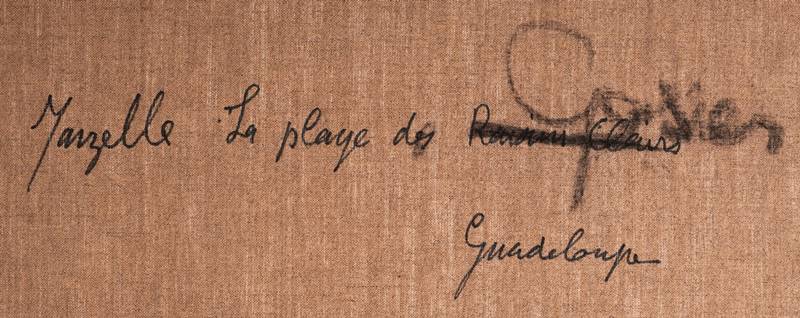 Jarzelle La plage des Raisins Clairs Gosier
Guadeloupe